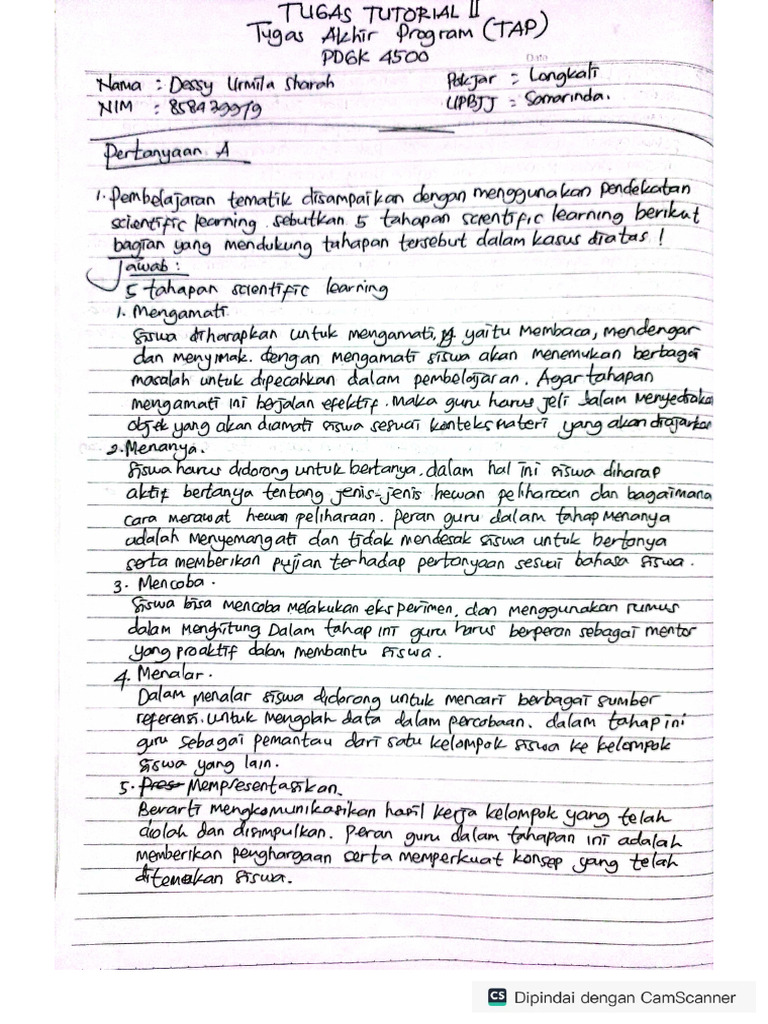 TUGAS TUTORIAL II
Tugas Akhir Program (TAP)
PDGK 4500
Date
Nama : Dessy Urmila Sharah
Pokjar : Longkali
NIM : 858479979
UPBJJ : Samarinda.
Pertanyaan A
1. Pembelajaran tematik disampaikan dengan menggunakan pendekatan
scientific learning. sebutkan 5 tahapan scientific learning berikut
bagian yang mendukung tahapan tersebut dalam kasus diatas !
Jawab :
5 tahapan scientific learning
1. Mengamati
Siswa diharapkan untuk mengamati, yaitu Membaca, mendengar
dan menyimak. dengan mengamati siswa akan menemukan berbagai
masalah untuk dipecahkan dalam pembelajaran. Agar tahapan
mengamati ini berjalan efektif. Maka guru harus jeli dalam Menyediaka
objek yang akan diamati siswa sesuai konteks materi yang akan diajarkan
2. Menanya.
Siswa harus didorong untuk bertanya. dalam hal ini siswa diharap
aktif bertanya tentang jenis-jenis hewan peliharaan dan bagaimana
cara merawat hewan peliharaan. Peran guru dalam tahap Menanya
adalah Menyemangati dan tidak mendesak siswa untuk bertanya
serta memberikan pujian terhadap pertanyaan sesuai bahasa siswa.
3. Mencoba.
Siswa bisa mencoba melakukan eksperimen, dan menggunakan rumus
dalam Menghitung Dalam tahap ini guru harus berperan sebagai mentor
yang proaktif dalam membantu siswa.
4. Menalar.
Dalam menalar siswa didorong untuk mencari berbagai sumber
referensi. untuk mengolah data dalam percobaan. dalam tahap ini
guru sebagai pemantau dari satu kelompok siswa ke kelompok
siswa yang lain.
5. Mempresentasikan.
Berarti mengkomunikasikan hasil kerja kelompok yang telah
diolah dan disimpulkan. Peran guru dalam tahapan ini adalah
memberikan penghargaan serta memperkuat konsep yang telah
ditemukan siswa.
CS Dipindai dengan CamScanner